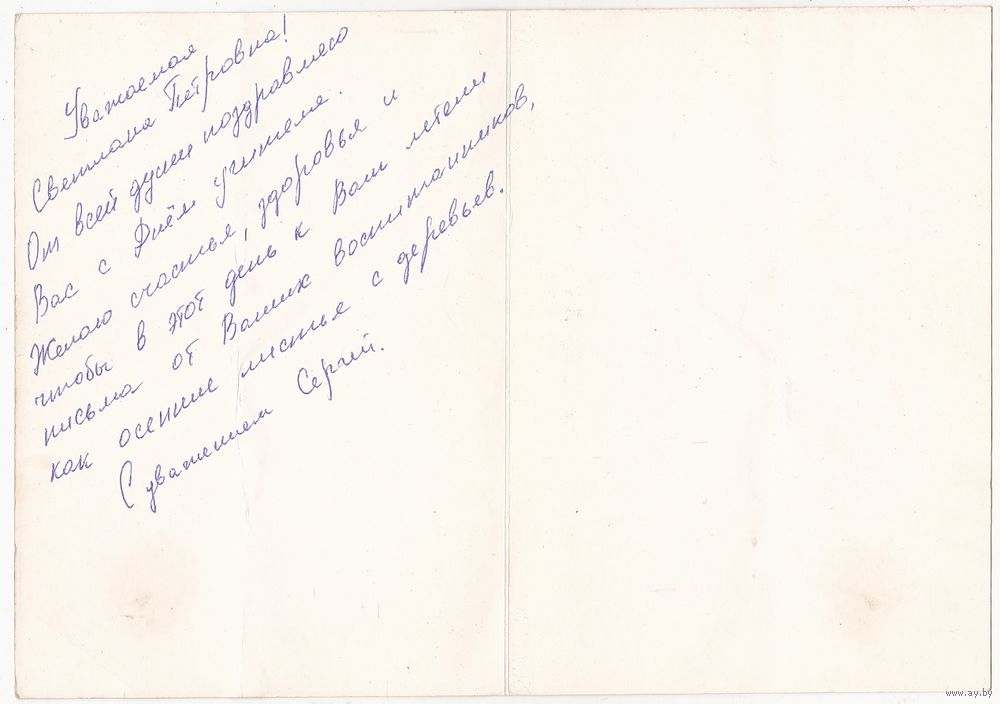 Уважаемая
Светлана Петровна!
От всей души поздравляю
Вас с Днём учителя.
Желаю счастья, здоровья и
чтобы в этот день к Вам летели
письма от Ваших воспитанников,
как осенние листья с деревьев.
С уважением Сергей.
www.ay.by